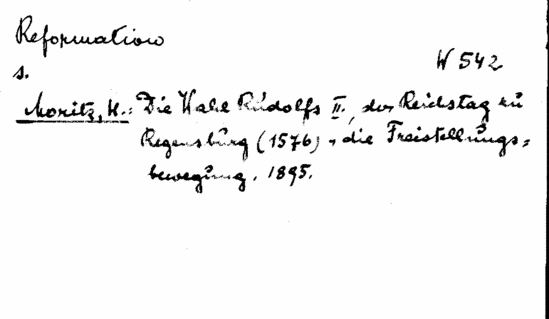 Reformation
W 542
s.
Moritz, H.: Die Wahl Rudolfs II., der Reichstag zu
Regensburg (1576) u. die Freistellungs=
bewegung. 1895.